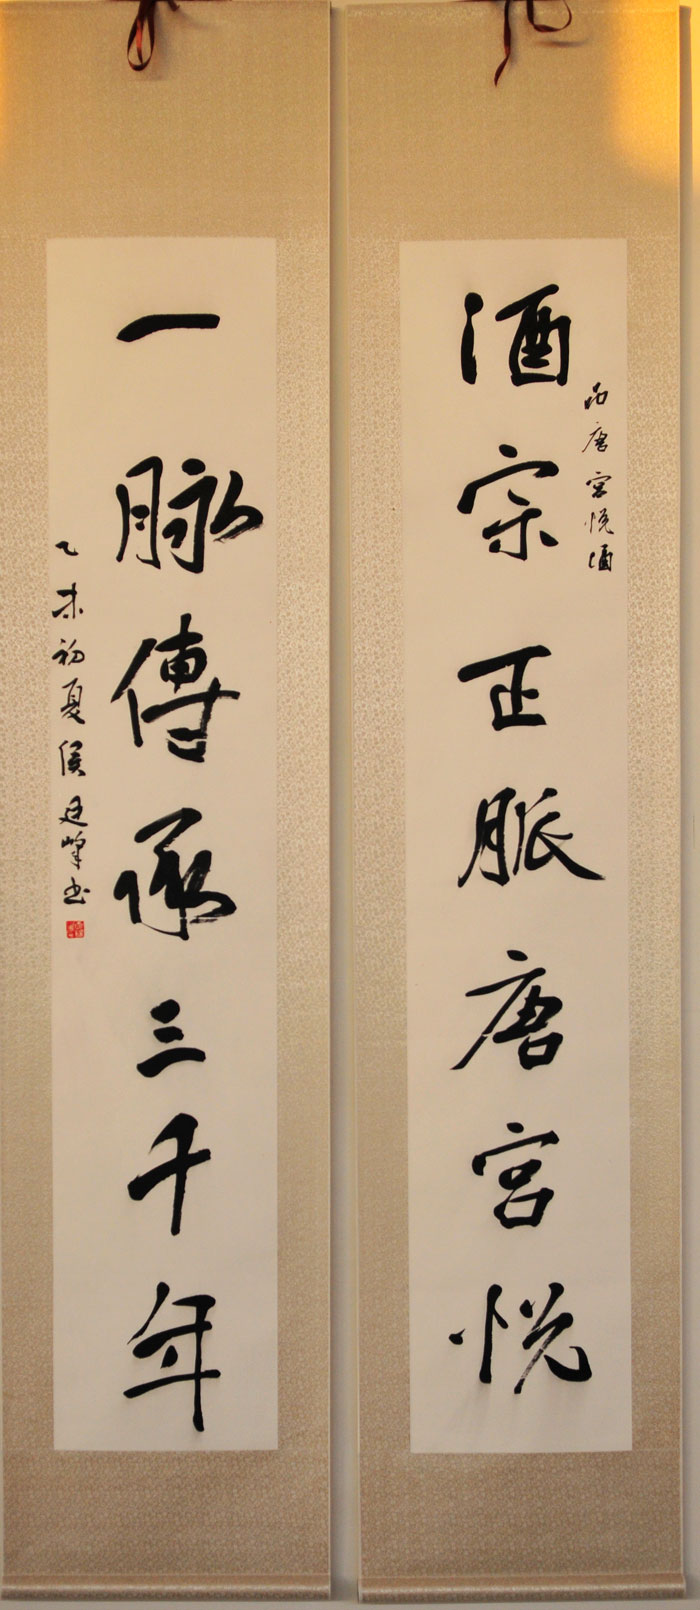 酒宗正脈唐宮悅
品唐宮悅酒
一脉傳承三千年
乙未初夏侯廷峰书